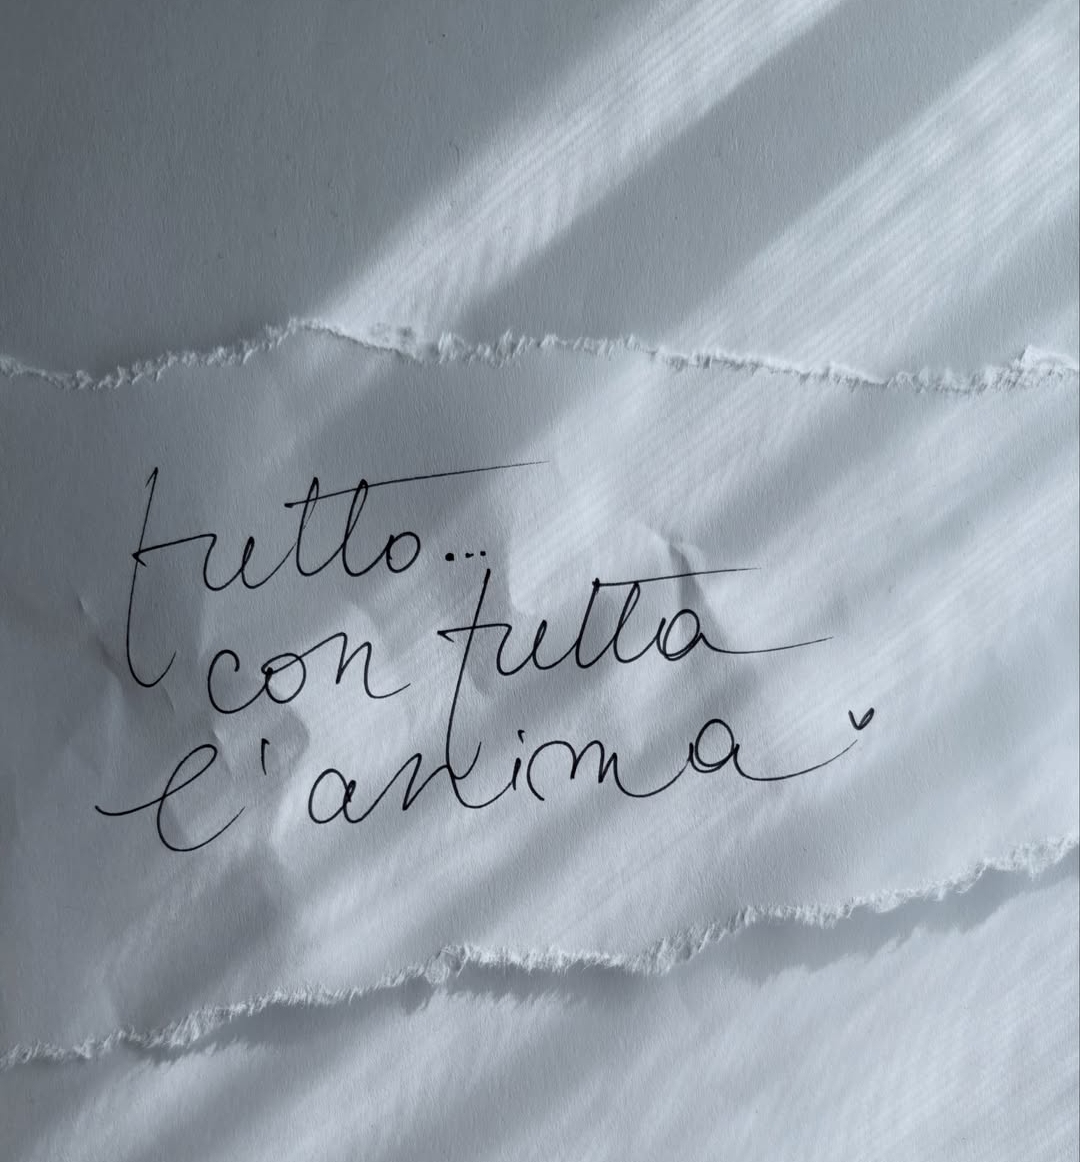 tutto...
con tutta
l'anima